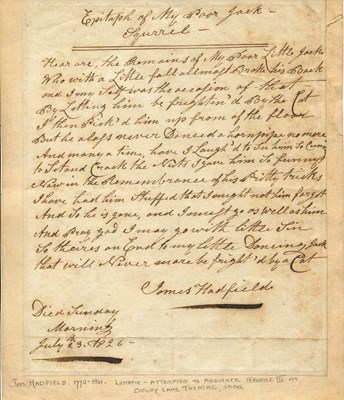 Epitaph of My Poor Jack
Squirrel
Hear are, the Remains of My Poor Little Jack
Who with a Little fall allmost Broke his Back
and I my Self was the accasion of that
By Letting him be frighten'd By the Cat
I then Pick'd him up from of the flore
But he alass never Danced a hornpipe no more
And many a time, have I Laugh'd to See him So Cunning
to Set and Crack the Nuts I gave him So funny
Now in the Remembrance of his Pritty tricks
I have had him Stuffed that I might not him forgit
And So he is gone, and I must go as well as him
And Pray God I may go with little Sin
So theirs an End to my little Dancing Jack
that will Never more be fright'd by a Cat
James Hadfield
Died Sunday
Morning
July 23. 1826
JAS. HADFIELD. 1772-1841. LUNATIC - ATTEMPTED TO ASSASSINATE GEORGE III AT
DRURY LANE THEATRE, 1800